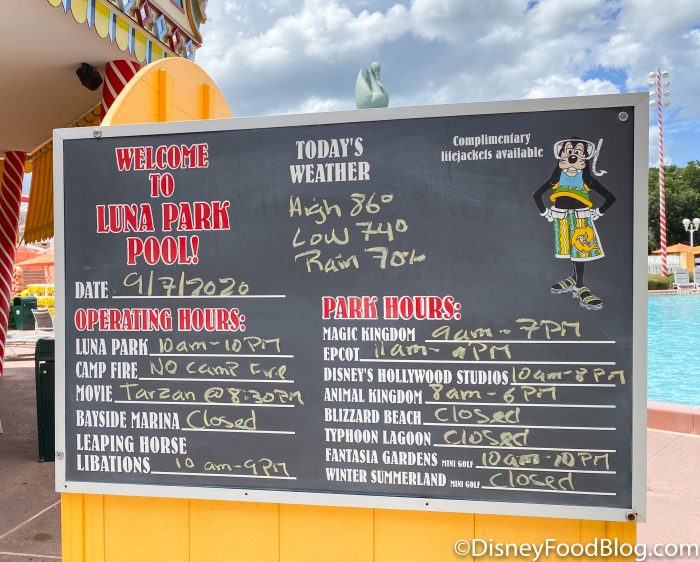 WELCOME
TO
LUNA PARK
POOL!
DATE 9/7/2020
OPERATING HOURS:
LUNA PARK 10am-10PM
CAMP FIRE NO Camp Fire
MOVIE Tarzan @ 8:30PM
BAYSIDE MARINA Closed
LEAPING HORSE
LIBATIONS 10am-9PM
TODAY'S
WEATHER
High 86°
Low 74°
Rain 70%
Complimentary
lifejackets available
PARK HOURS:
MAGIC KINGDOM 9am-7PM
EPCOT 11am- PM
DISNEY'S HOLLYWOOD STUDIOS 10am-8PM
ANIMAL KINGDOM 8am-6PM
BLIZZARD BEACH Closed
TYPHOON LAGOON Closed
FANTASIA GARDENS MINI GOLF 10am-10PM
WINTER SUMMERLAND MINI GOLF Closed
©DisneyFoodBlog.com